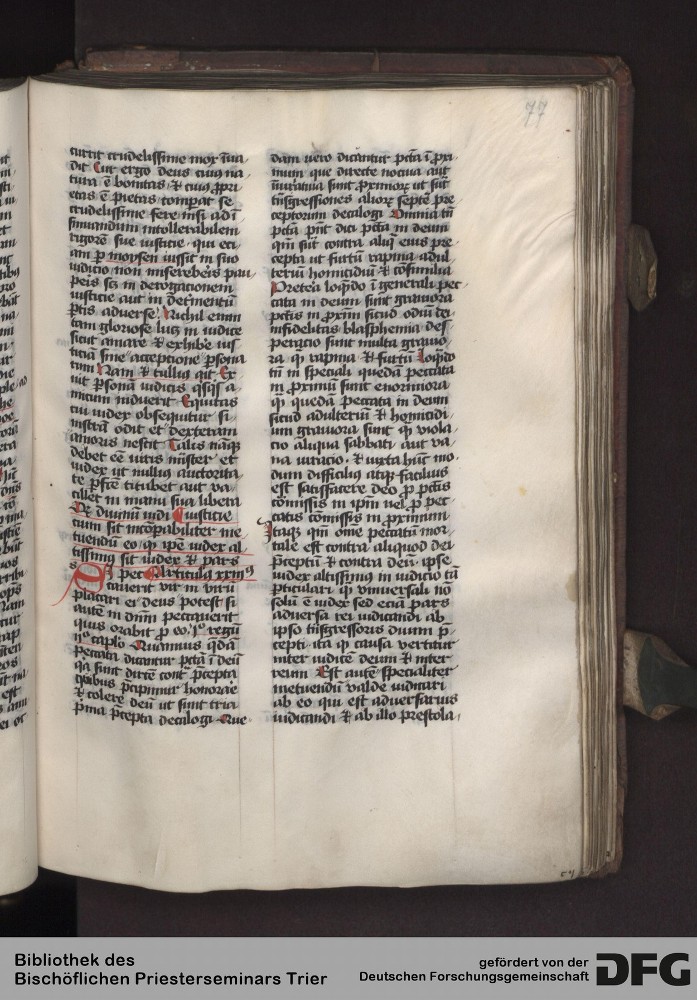 77
currit crudelissime mox īua
dit Cur ergo deus cuiꝯ na
tura ē bonitas ⁊ cuiꝯ ꝓpri
etas ē pietas compat se
crudelissime fere nisi ad ī
sinuandum intollerabilem
rigorē sue iusticie qui eci
am ꝑ moysen iussit in suo
iudicio non misereberis pau
peis scꝫ in derogacionem
iusticie aut in det̄mentū
ꝑtis aduerse Nichil enim
tam gloriose lucꝫ in iudice
sicut amare ⁊ exhibē ius
ticiā sine acceptione ꝑsona
rum Nam ⁊ tullius ait Ex
uit ꝑsonā iudicis qͥsqͥs a
micum induerit Equitas
cui iudex obsequitur si
nistrā odit et dexteram
amoris nescit Talis nāqꝫ
debet eē iuris mīster et
iudex ut nullius auctorita
te ꝑfcē titubet aut va
cillet in manu sua libera
De diuinū iudī iusticie
cium sit incōpabiliter me
tuendiū eo qͥ ipē iudex al
tissimꝯ sit iudex ⁊ pars
Si pec Articulꝯ xxiiiꝯ
cauerit vir in virū
placari ei deus potest si
autē in dnm peccauerit
quis orabit ꝓ eo jͦ regū
ijͦ caplͦo Quamuis qͣdā
peccata dicantur pctā ī deū
qͣ sunt dircē contͣ p̄cepta
quibus p̄cipimur honorare
⁊ colere deū ut sunt tria
pͥma p̄cepta decalogi Que
dam vero dicuntur pctā ī ꝓxi
mum que directe nociua aut
iniuriatiua sunt ꝓximoꝝ ut sūt
tͣnsgressiones alioꝝ septē pre
ceptorum decalogi Omnia tn̄
pctā pn̄t dici pctā in deum
qm̄ sūt contra alia eius pre
cepta ut furtū rapina adul
teriū homicidiū ⁊ cōsimilia
Preteā loqͥndo ī generali pec
cata in deum sunt grauiora
pctīs in ꝓxim sicud odiū dei
infidelitas blasphemia des
peracio sunt multa grauio
ra qͣ rapina ⁊ furtū Loqͥndo
tn̄ in speciali quedā peccata
in ꝓximū sunt enormiora
qͣ quedā peccata in deum
sicud adulteriū ⁊ homicidi
um grauiora sunt qͣ viola
cio aliqua sabbati aut va
na iuracio ⁊ iuxta hūc mo
dum difficiliꝯ atqꝫ facilius
est satisfacere deo ꝓ pctīs
cōmissis in ipm̄ vel ꝓ pec
catis cōmissis in ꝓximum
Itaqꝫ qm̄ om̄e peccatū mor
tale est contra aliquod dei
p̄ceptū ⁊ contra deū ipse
iudex altissimꝯ in iudicio tā
ꝑticulari qͣ vniuersali nō
solū ē iudex sed eciā pars
aduersa rei iudicandi ab
ipso tͣnsgressoris diuini p̄
cepti ita qͥ causa vertitur
inter iudicē deum ⁊ inter
reum Est autē specialiter
metuendū valde iudicari
ab eo qui est aduersarius
iudicandi ⁊ ab illo prestola
Bibliothek des
Bischöflichen Priesterseminars Trier
gefördert von der
Deutschen Forschungsgemeinschaft
DFG